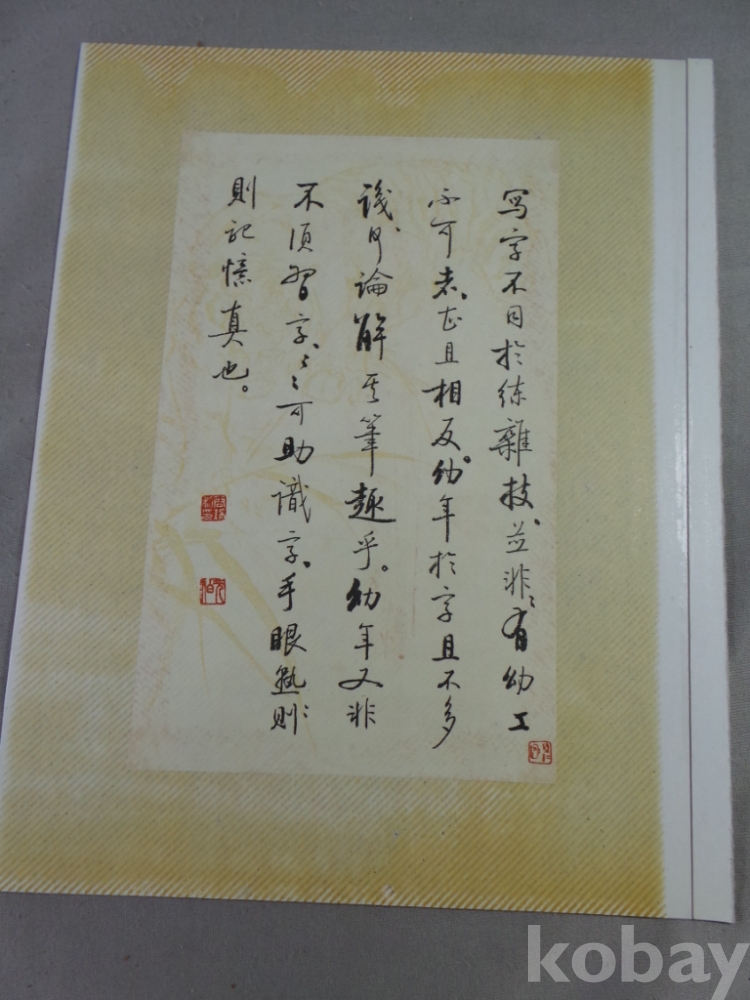 写字不同於练雜技、並非有幼工
不可者、甚且相反。幼年於字且不多
識、何論解其筆趣乎。幼年又非
不須習字、〻〻可助識字、手眼熟則
則記憶真也。
kobay